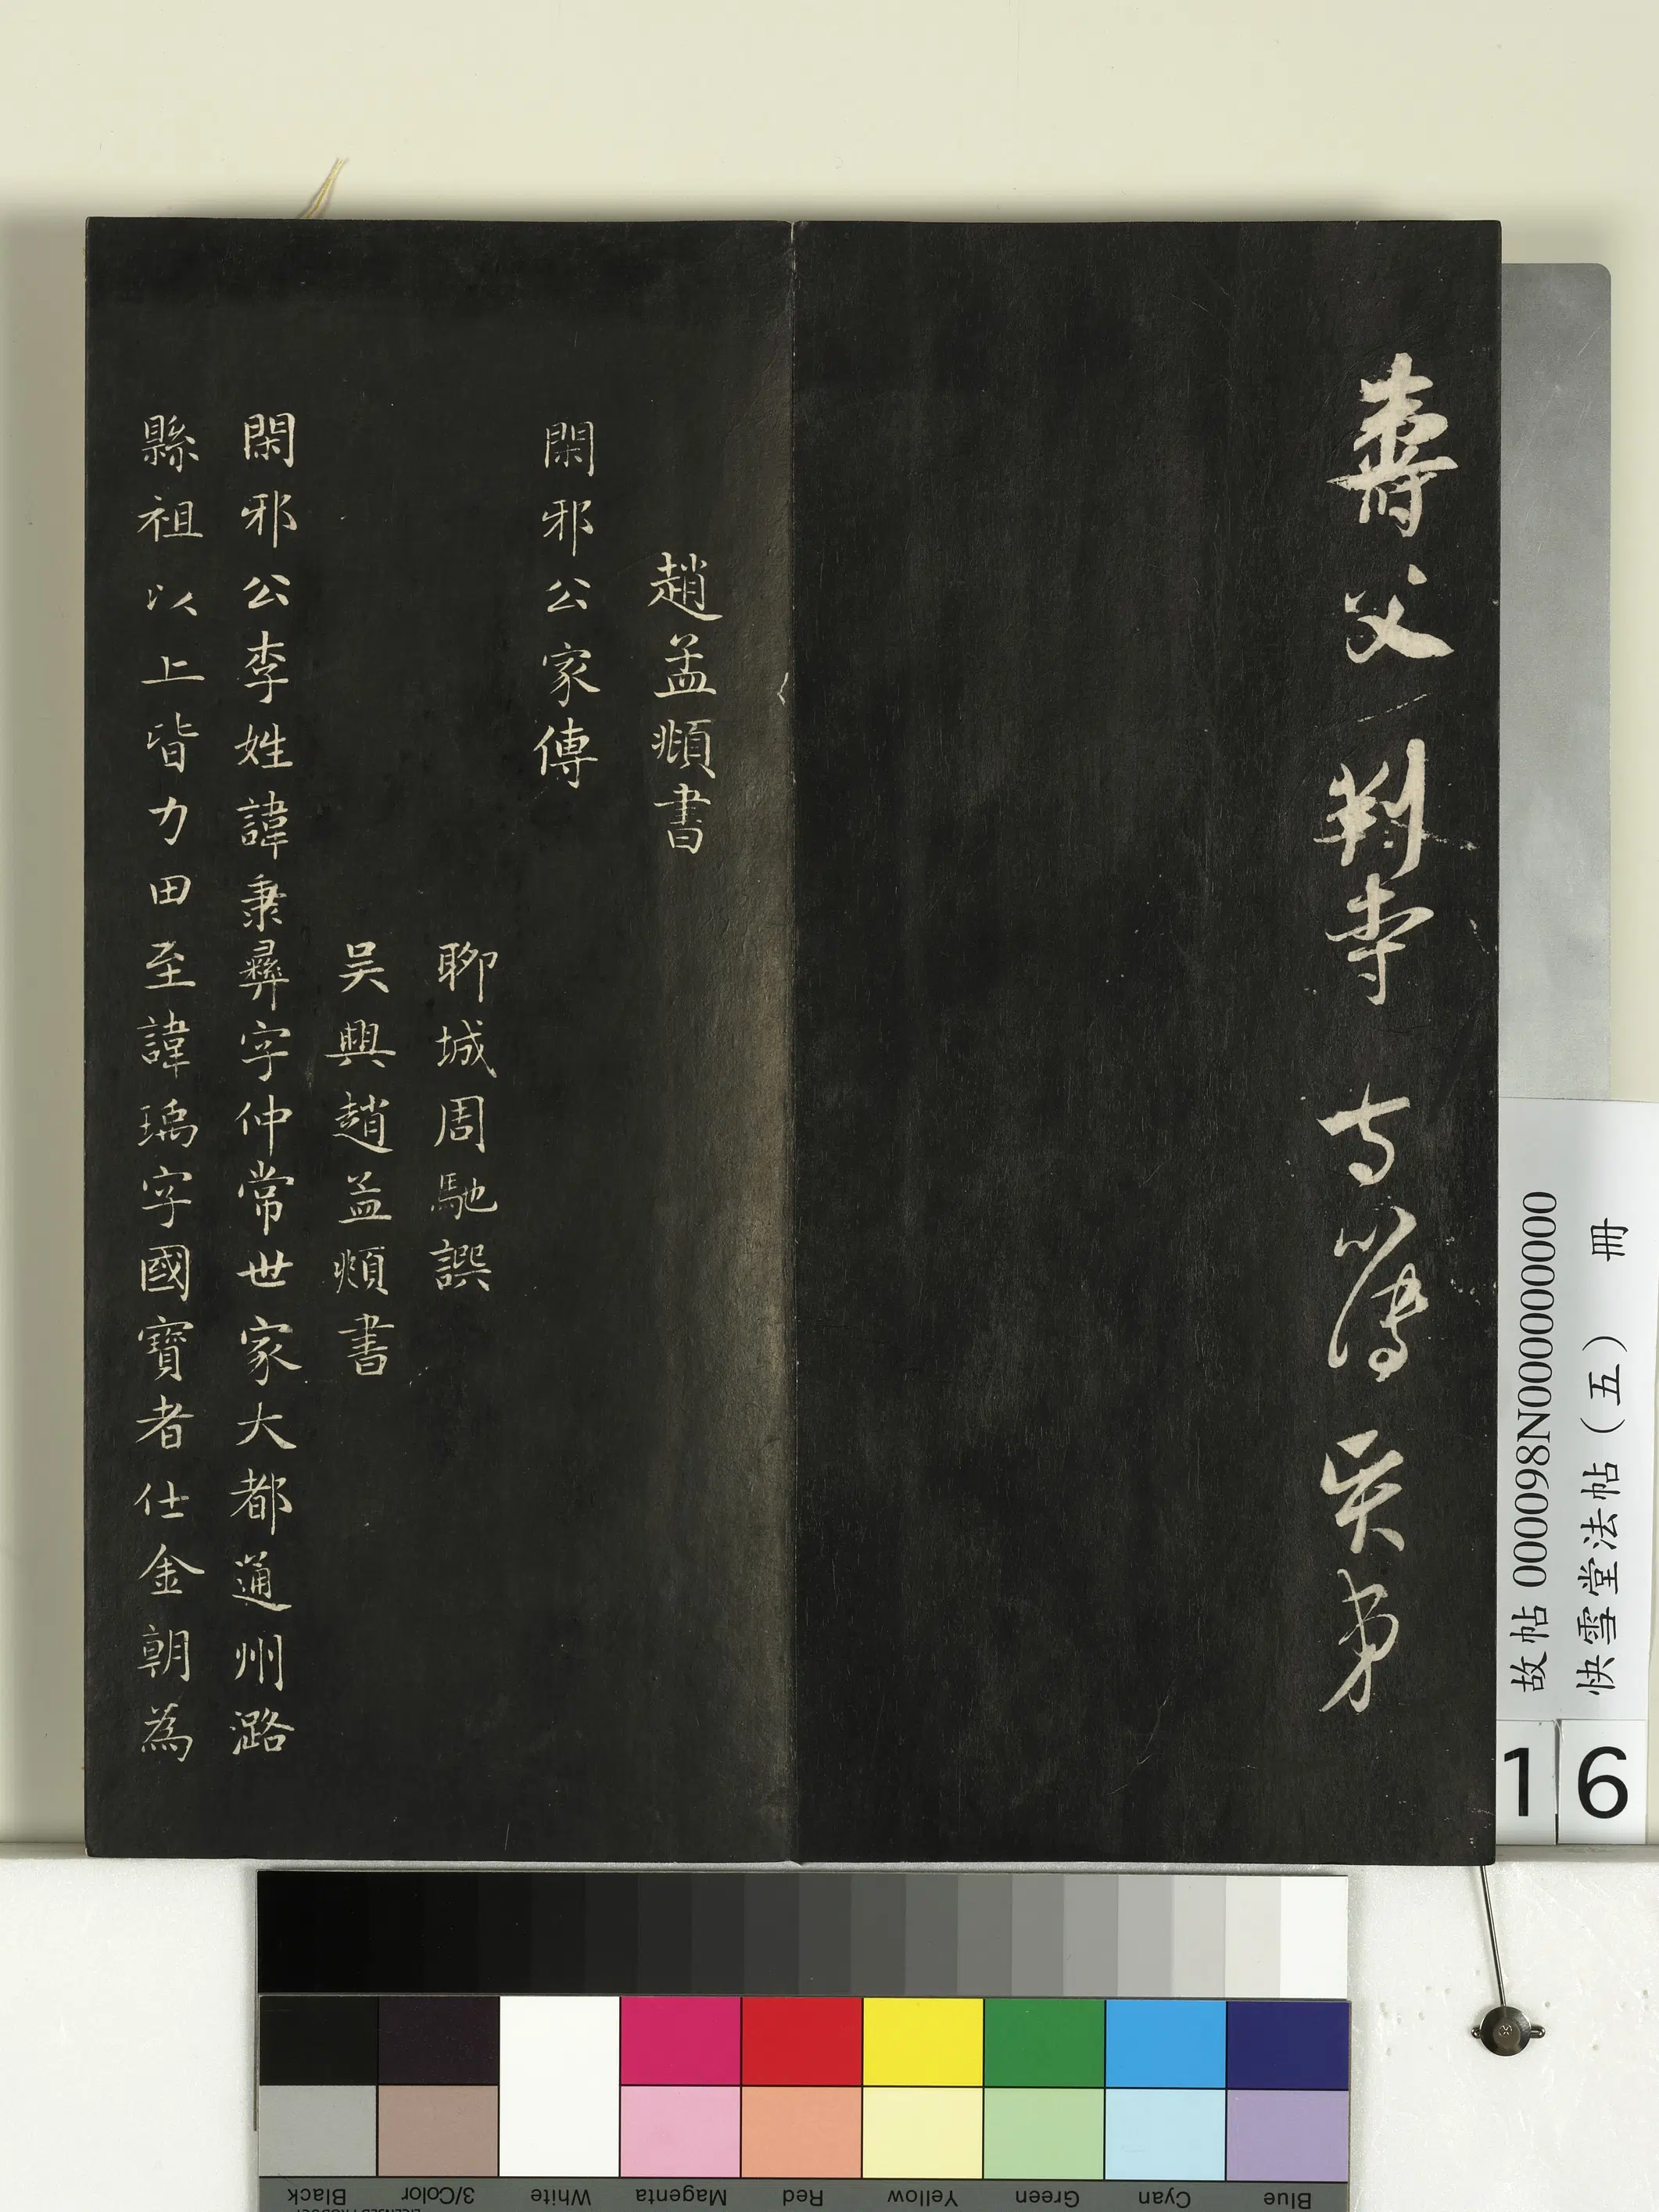 壽父判寺
趙孟頫書
閑邪公家傳
聊城周馳譔
吴興趙孟頫書
閑邪公李姓諱秉彝字仲常世家大都通州潞
縣祖以上皆力田至諱瑀字國寶者仕金朝為
故帖 000098N000000000
快雪堂法帖（五） 冊
16
Black
3/Color
White
Magenta
Red
Yellow
Green
Cyan
Blue